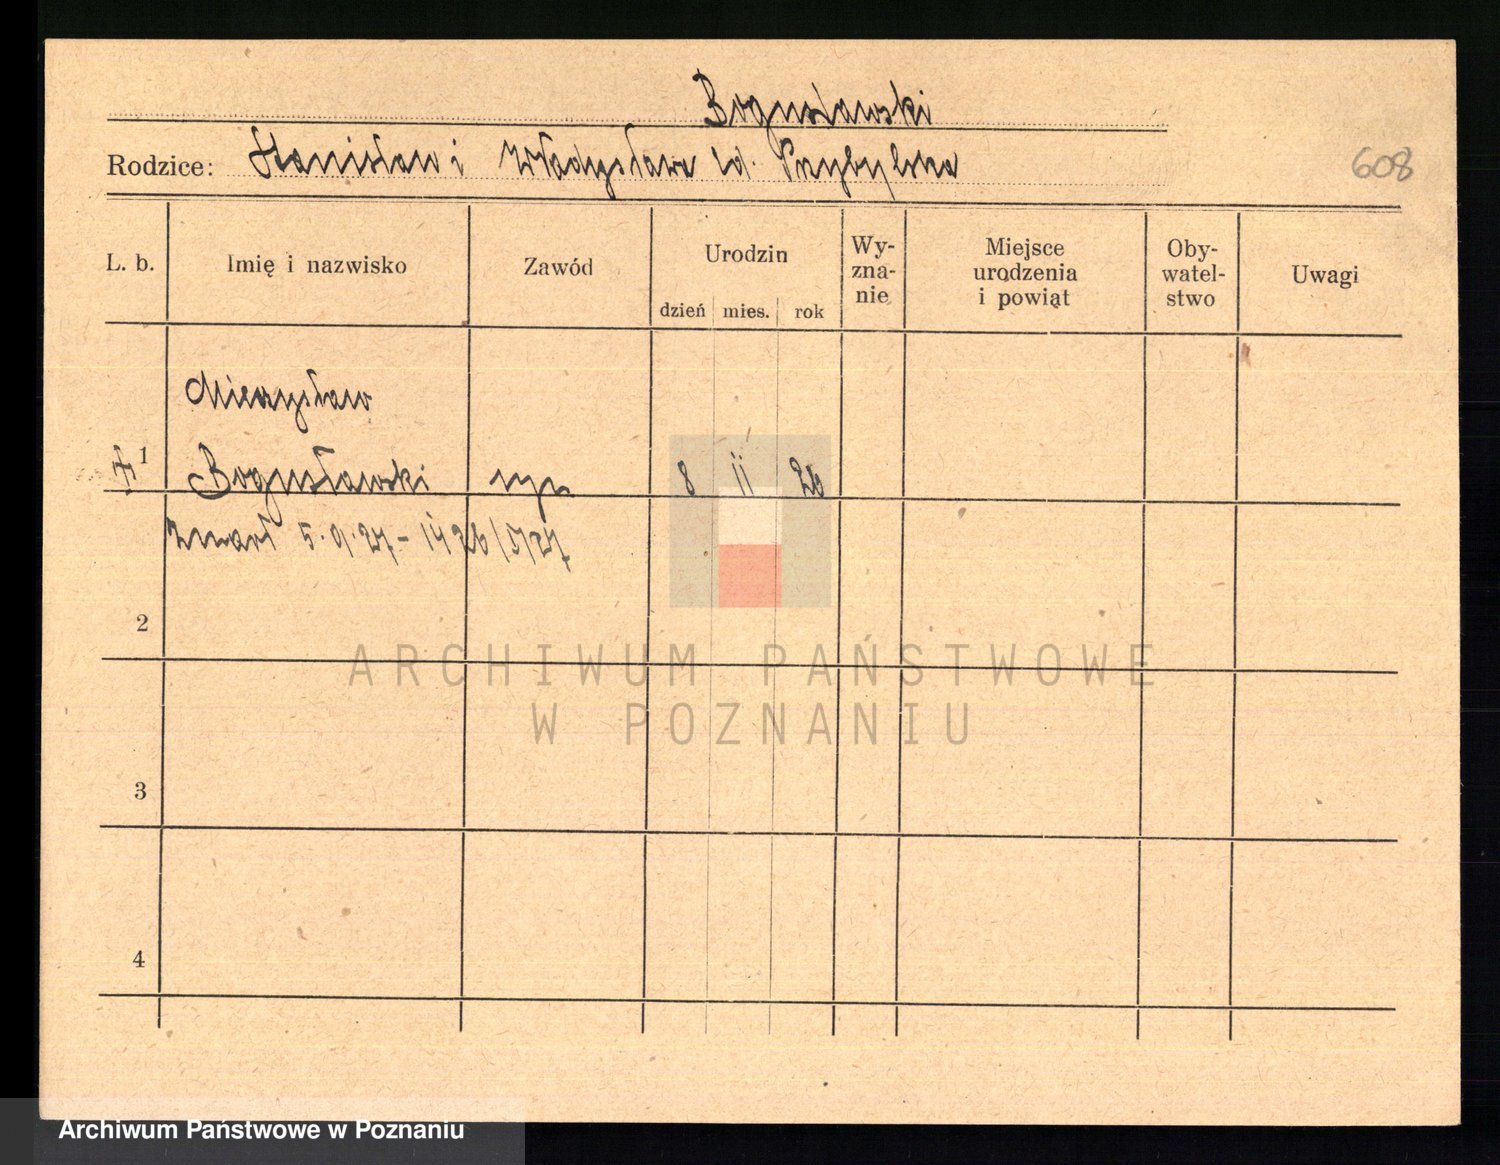 Bogusławski
Rodzice: Stanisław i Władysława Przybylska
608
L. b.
Imię i nazwisko
Zawód
Urodzin
dzień mies. rok
Wy-
zna-
nie
Miejsce
urodzenia
i powiąt
Oby-
watel-
stwo
Uwagi
Mieczysław
1 Bogusławski syn 8 11 26
Zmarł 5.9.27 -
2
3
4
ARCHIWUM PAŃSTWOWE
W POZNANIU
Archiwum Państwowe w Poznaniu